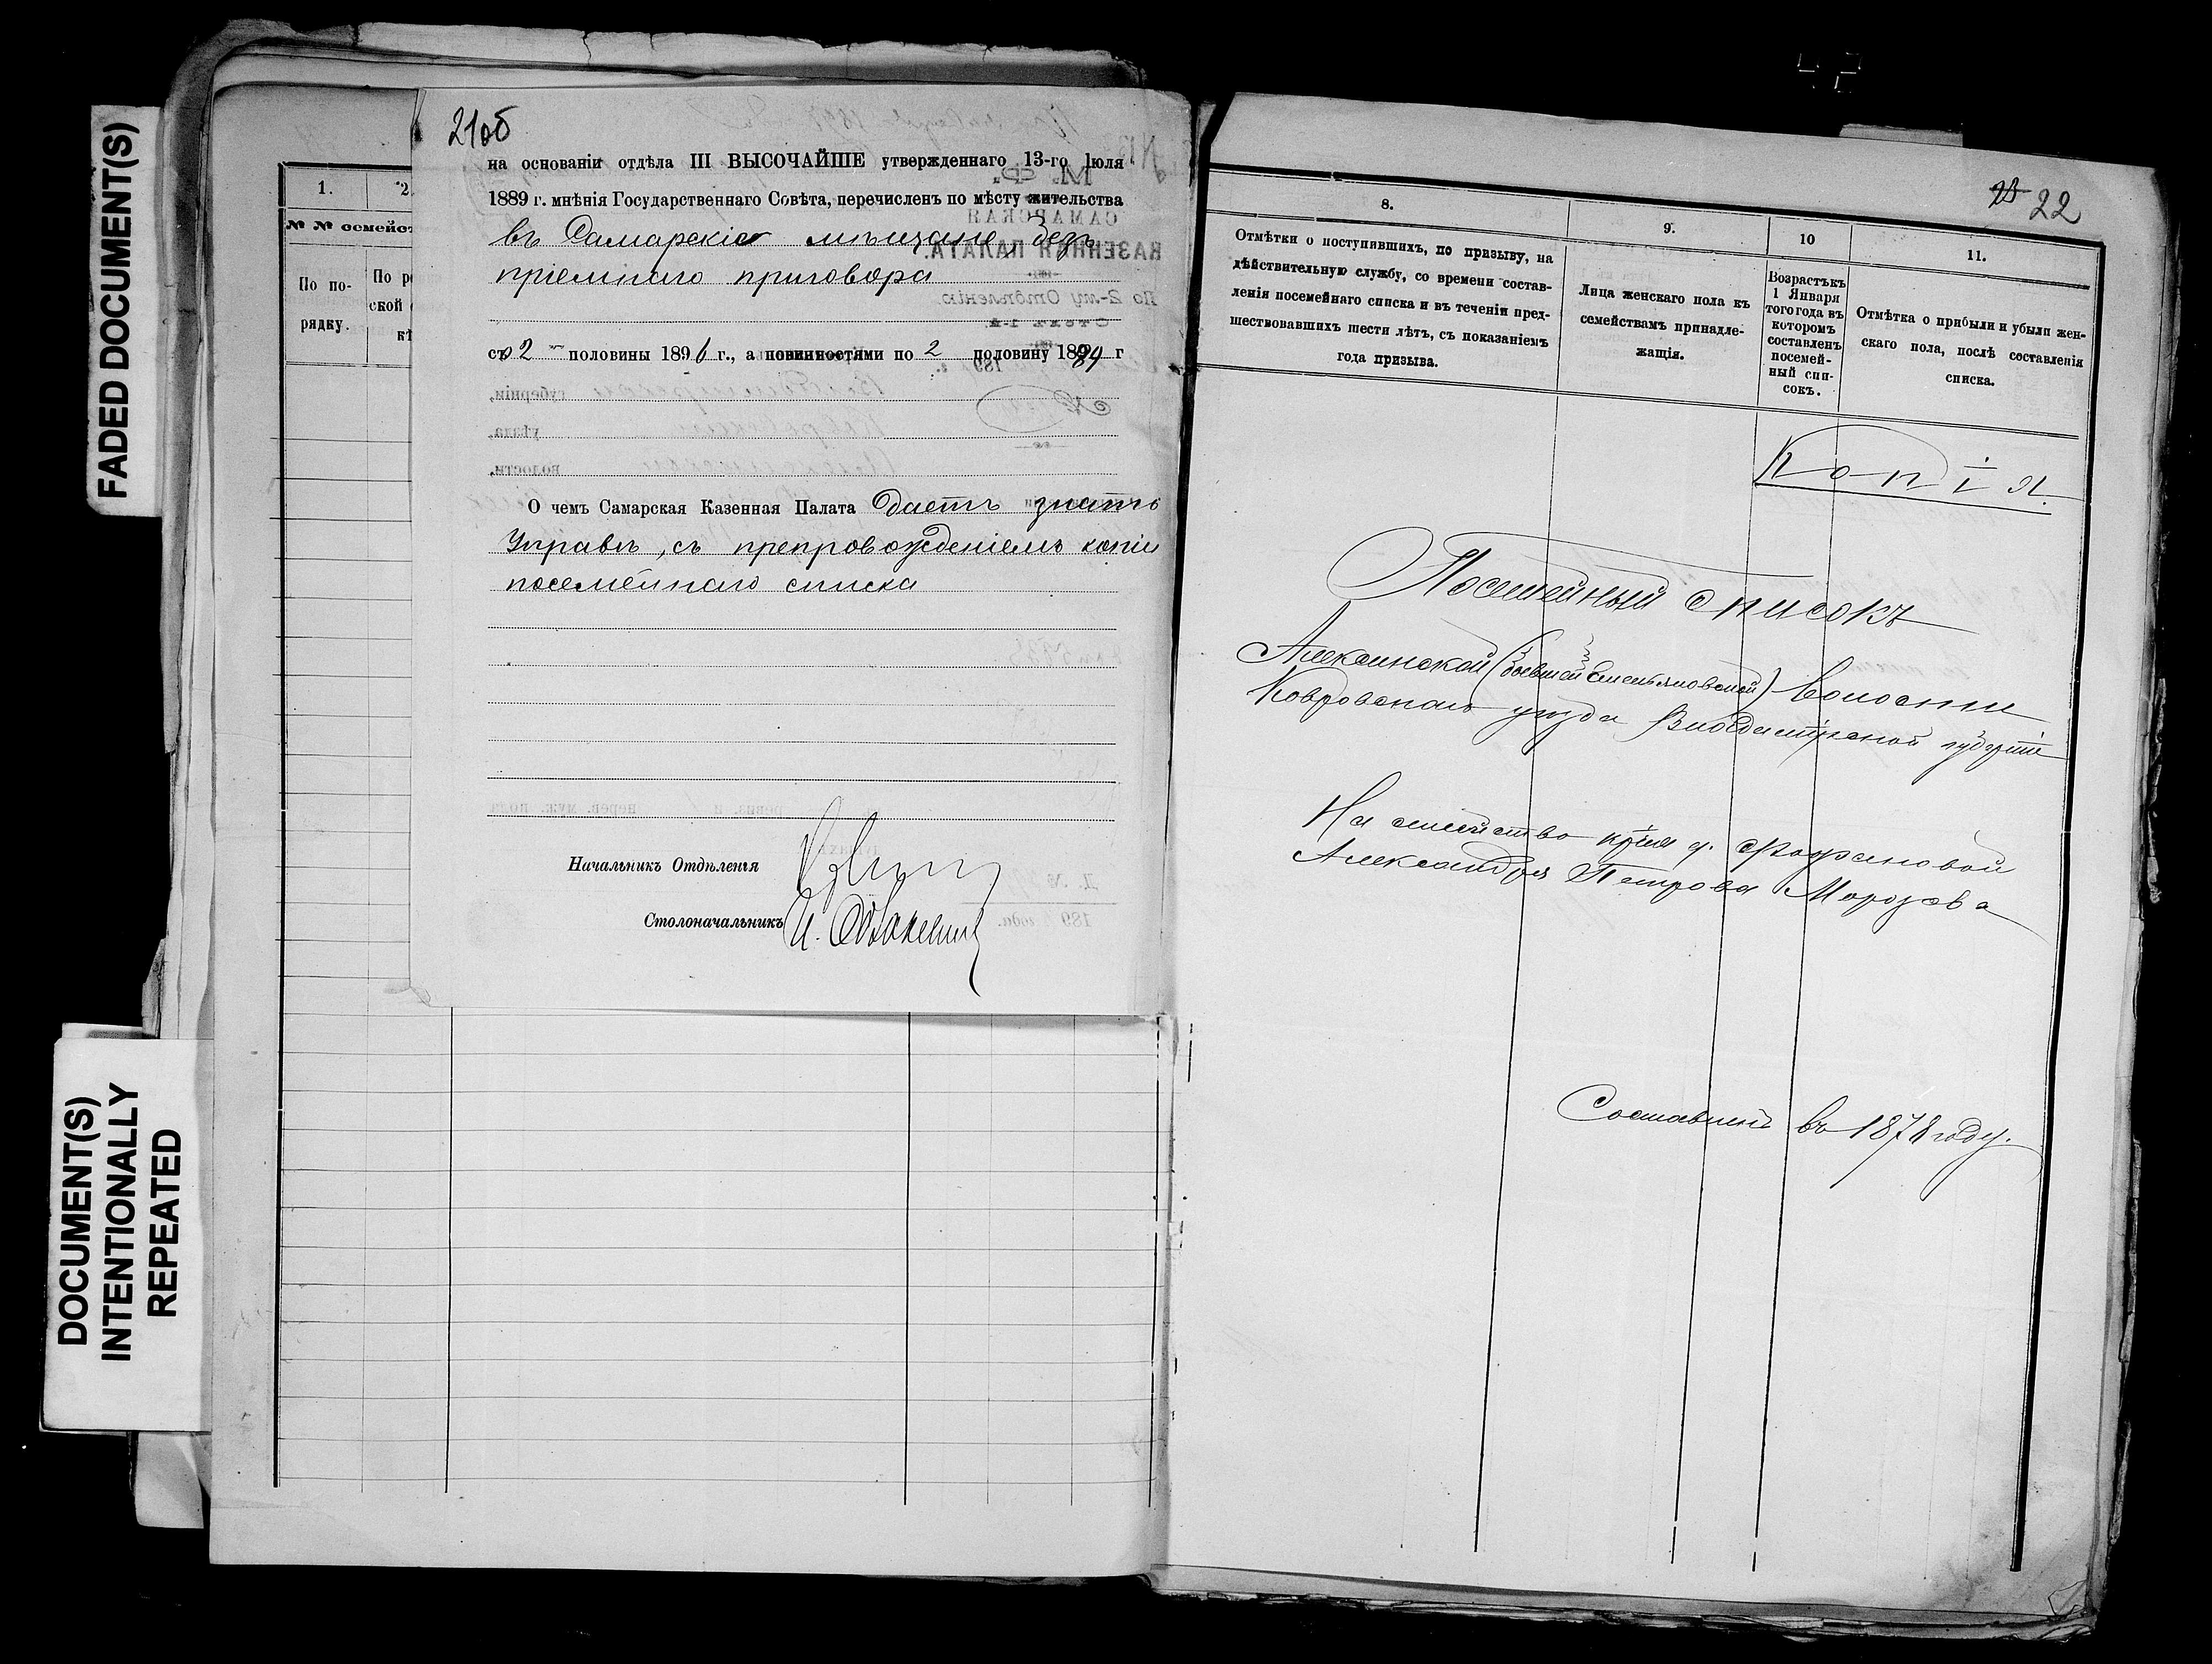 FADED DOCUMENT(S)
DOCUMENT(S)
INTENTIONALLY
REPEATED
1.
2.
№ № семейст
По по-
рядку.
По ре
ской
21об
на основаніи отдѣла III ВЫСОЧАЙШЕ утвержденнаго 13-го Іюля
1889 г. мнѣнія Государственнаго Совѣта, перечисленъ по мѣсту жительства
въ Самарскіе мѣщане, безъ
пріемнаго приговора
съ 2 половины 1896 г., а повинностями по 2 половину 1894 г
О чемъ Самарская Казенная Палата даетъ знать
Управѣ, съ препровожденіемъ копіи
посемейнаго списка
Начальникъ Отдѣленія
Столоначальникъ
22
8.
9.
10
11.
Отмѣтки о поступившихъ, по призыву, на
дѣйствительную службу, со времени состав-
ленія посемейнаго списка и въ теченіи пред-
шествовавшихъ шести лѣтъ, съ показаніемъ
года призыва.
Лица женскаго пола къ
семействамъ принадле-
жащія.
Возрастъ къ
1 Января
того года въ
которомъ
составленъ
посемей-
ный спи-
сокъ.
Отмѣтка о прибыли и убыли жен-
скаго пола, послѣ составленія
списка.
Копія.
Посемейный списокъ
Алексинской (бывшей Емельяновской) волости
Ковровскаго уѣзда Владимірской губерніи
На семейство кр-на д.
Александра Петрова Морозова
Составленъ въ 1878 году.